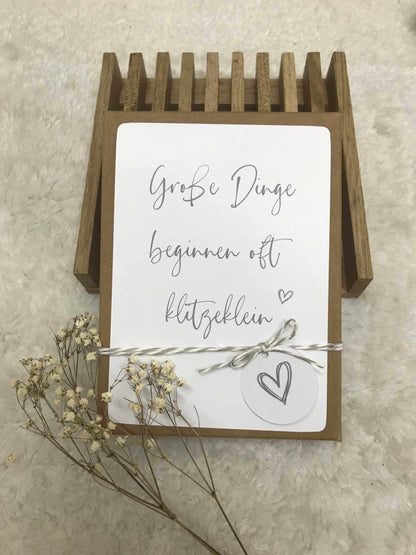 Große Dinge
beginnen oft
klitzeklein